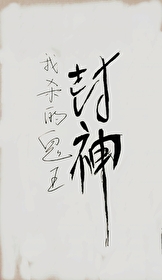 封神
我杀的鬼王